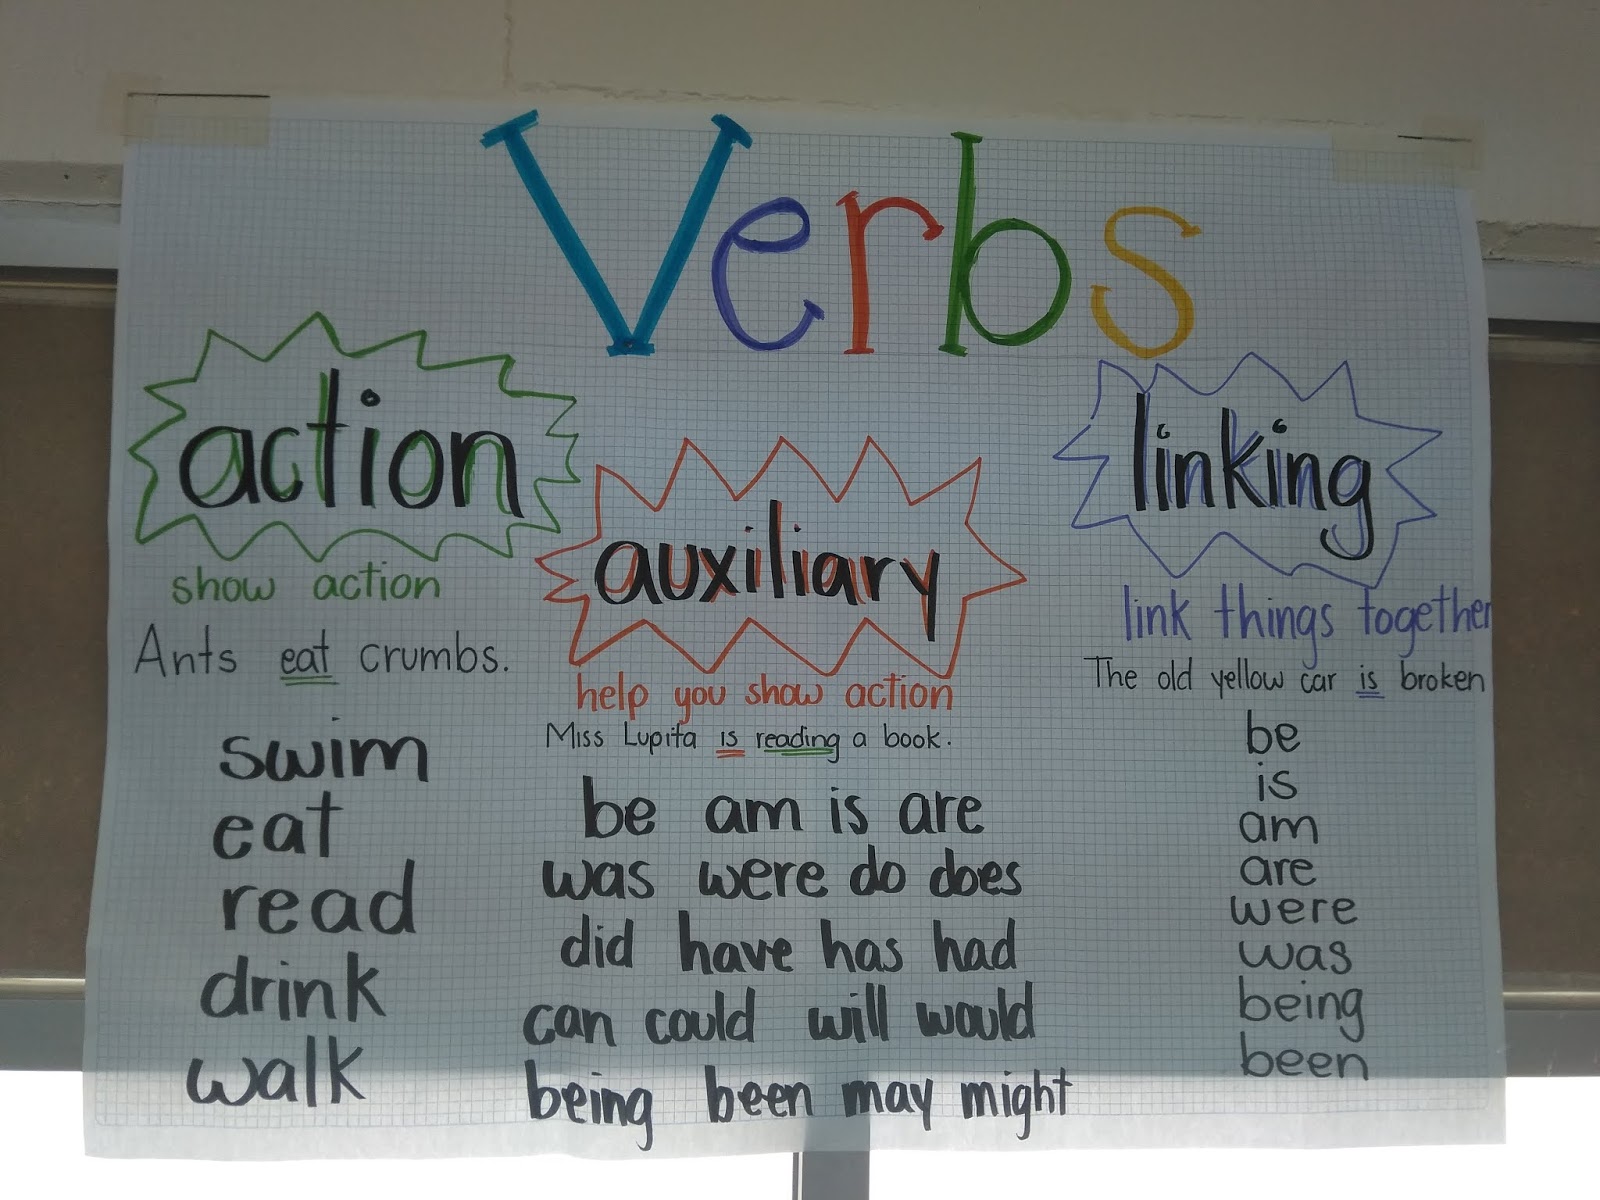 Verbs
action
show action
Ants eat crumbs.
swim
eat
read
drink
walk
auxiliary
help you show action
Miss Lupita is reading a book.
be am is are
was were do does
did have has had
can could will would
being been may might
linking
link things together
The old yellow car is broken
be
is
am
are
were
was
being
been